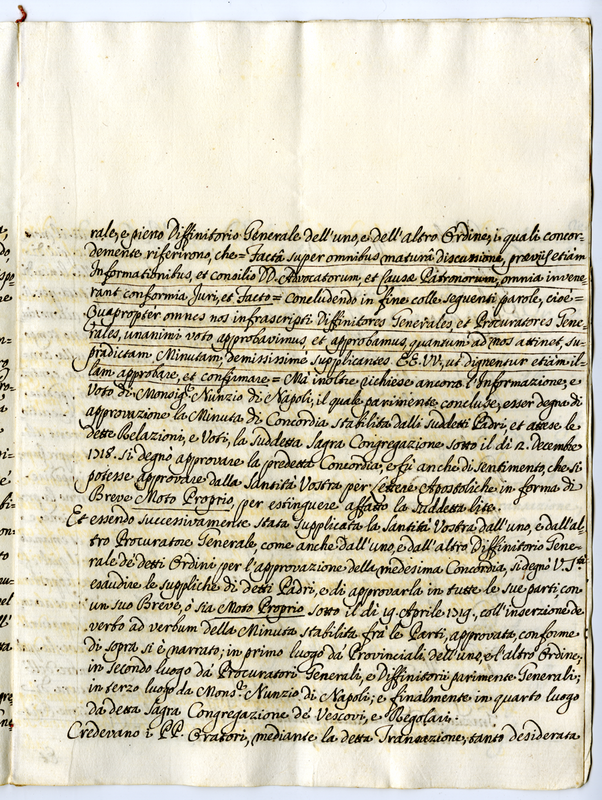 rale, e pieno Diffinitorio Generale dell'uno, e dell'altro Ordine, i quali concor-
demente riferirono, che = Factâ super omnibus maturâ discussione, præviis etiam
Informationibus, et consilio DD. Advocatorum, et Causæ Patronorum, omnia invene-
rant conformia Juri, et Facto = concludendo in fine colle seguenti parole, cioè =
Quapropter omnes nos infrascripti Diffinitores Generales, et Procuratores Gene-
rales, unanimi voto approbavimus, et approbamus, quantum ad nos attinet, su-
pradictam Minutam, demississime supplicantes EE. VV., ut dignentur etiam il-
lam approbare, et confirmare = Mà inoltre richiese ancora l'Informazione, e
Voto di Monsig.r Nunzio di Napoli, il quale parimente concluse, esser degna di
approvazione la Minuta di Concordia stabilita dalli suddetti Padri, et attese le
dette Relazioni, e Voti, la suddetta Sagra Congregazione sotto il dì 2. Decembre
1718. si degnò approvare la predetta Concordia, e fù anche di sentimento, che si
potesse approvare dalla Santità Vostra per Lettere Apostoliche in forma di
Breve Moto Proprio, per estinguere affatto la suddetta lite.
Et essendo successivamente stata supplicata la Santità Vostra dall'uno, e dall'al-
tro Procuratore Generale, come anche dall'uno, e dall'altro Diffinitorio Gene-
rale de' detti Ordini per l'approvazione della medesima Concordia, si degnò V. S.tà
esaudire le suppliche di detti Padri, e di approvarla in tutte le sue parti con
un suo Breve, ò sia Moto Proprio sotto il dì 19. Aprile 1719., coll'inserzione de
verbo ad verbum della Minuta stabilita frà le Parti, approvata, conforme
di sopra si è narrato; in primo luogo da' Provinciali dell'uno, e l'altro Ordine;
in secondo luogo da' Procuratori Generali, e Diffinitorii parimente Generali;
in terzo luogo da Mons.r Nunzio di Napoli; e finalmente in quarto luogo
da detta Sagra Congregazione de' Vescovi, e Regolari.
Credevano i PP. Oratori, mediante la detta Transazione, tanto desiderata